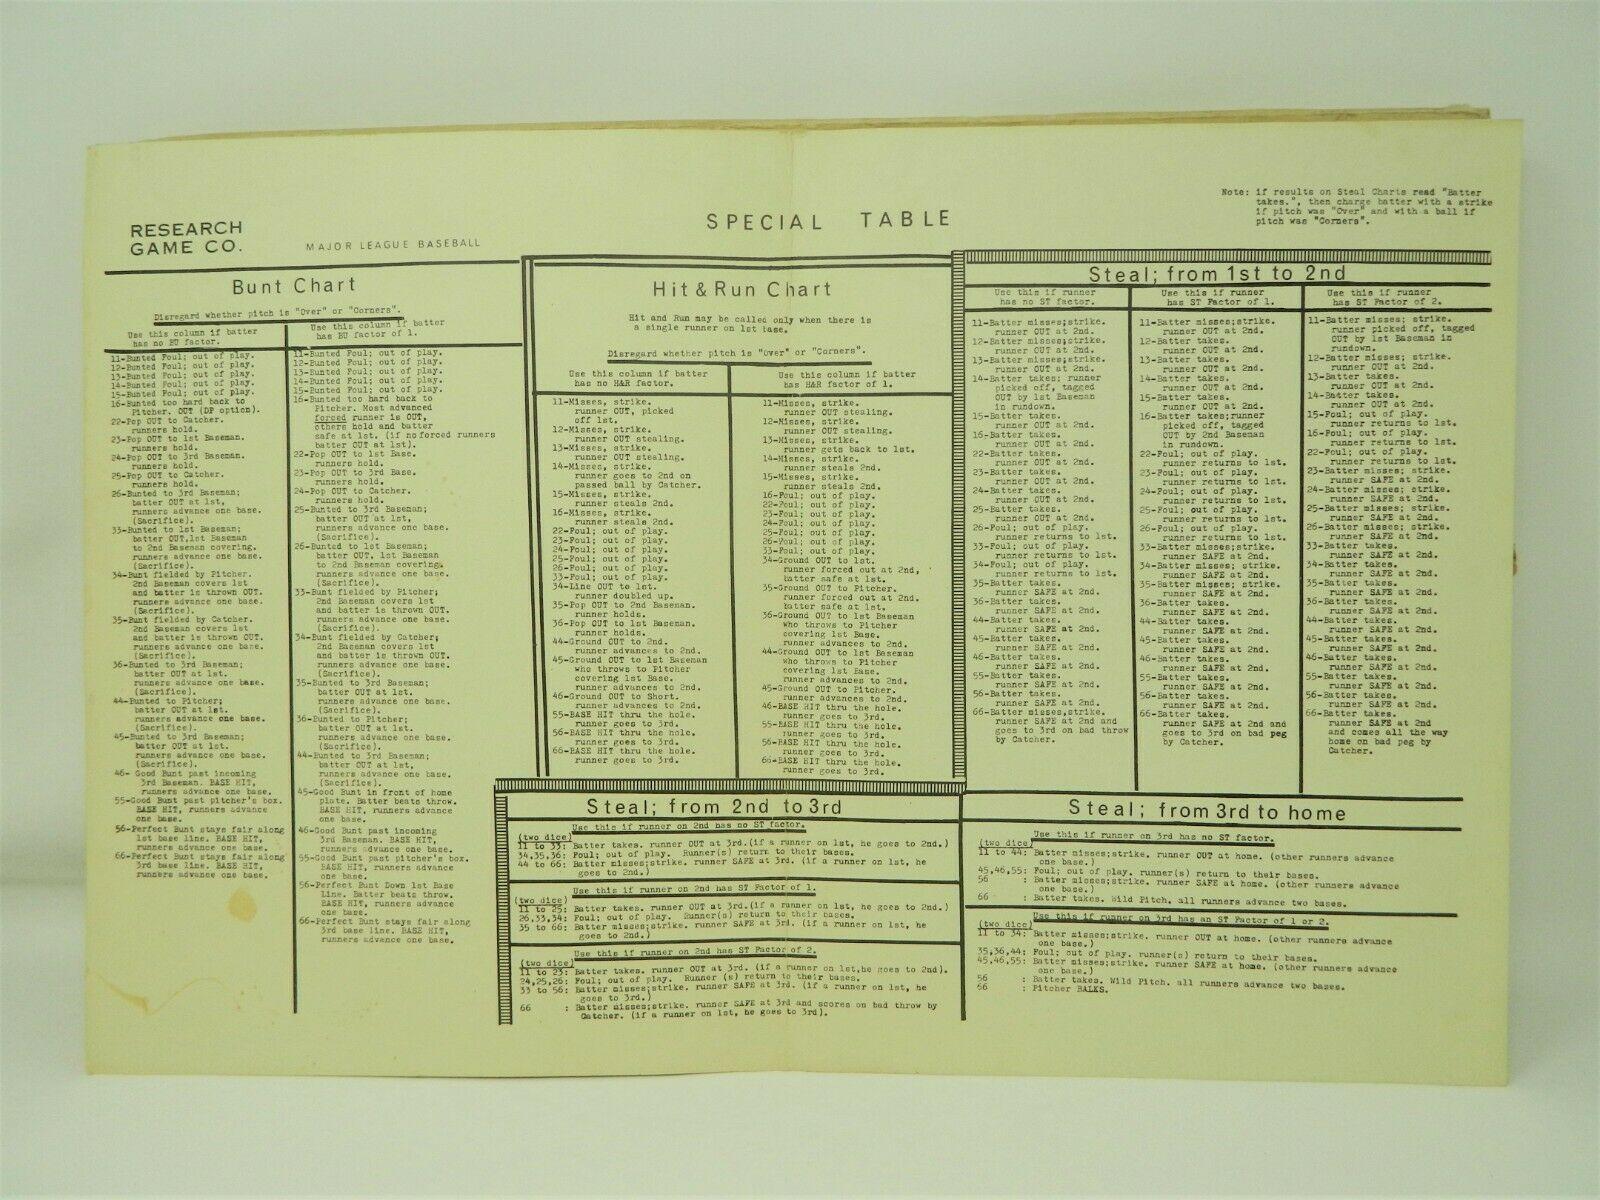 RESEARCH
GAME CO.
MAJOR LEAGUE BASEBALL
SPECIAL TABLE
Note: if results on Steal Charts read "Batter
takes.", then charge batter with a strike
if pitch was "Over" and with a ball if
pitch was "Corners".
Bunt Chart
Disregard whether pitch is "Over" or "Corners".
Use this column if batter
has no BU factor.
11-Bunted Foul; out of play.
12-Bunted Foul; out of play.
13-Bunted Foul; out of play.
14-Bunted Foul; out of play.
15-Bunted Foul; out of play.
16-Bunted too hard back to
Pitcher. OUT (DP option).
22-Pop OUT to Catcher.
runners hold.
23-Pop OUT to 1st Baseman.
runners hold.
24-Pop OUT to 3rd Baseman.
runners hold.
25-Pop OUT to Catcher.
runners hold.
26-Bunted to 3rd Baseman;
batter OUT at 1st,
runners advance one base.
(Sacrifice).
33-Bunted to 1st Baseman;
batter OUT,1st Baseman
to 2nd Baseman covering.
runners advance one base.
(Sacrifice).
34-Bunt fielded by Pitcher.
2nd Baseman covers 1st
and batter is thrown OUT.
runners advance one base.
(Sacrifice).
35-Bunt fielded by Catcher.
2nd Baseman covers 1st
and batter is thrown OUT.
runners advance one base.
(Sacrifice).
36-Bunted to 3rd Baseman;
batter OUT at 1st.
runners advance one base.
(Sacrifice).
44-Bunted to Pitcher;
batter OUT at 1st.
runners advance one base.
(Sacrifice).
45-Bunted to 3rd Baseman;
batter OUT at 1st.
runners advance one base.
(Sacrifice).
46- Good Bunt past incoming
3rd Baseman. BASE HIT,
runners advance one base.
55-Good Bunt past pitcher's box.
BASE HIT, runners advance
one base.
56-Perfect Bunt stays fair along
1st base line. BASE HIT,
runners advance one base.
66-Perfect Bunt stays fair along
3rd base line. BASE HIT,
runners advance one base.
Use this column if batter
has BU factor of 1.
11-Bunted Foul; out of play.
12-Bunted Foul; out of play.
13-Bunted Foul; out of play.
14-Bunted Foul; out of play.
15-Bunted Foul; out of play.
16-Bunted too hard back to
Pitcher. Most advanced
forced runner is OUT,
others hold and batter
safe at 1st. (if no forced runners
batter OUT at 1st).
22-Pop OUT to 1st Base.
runners hold.
23-Pop OUT to 3rd Base.
runners hold.
24-Pop OUT to Catcher.
runners hold.
25-Bunted to 3rd Baseman;
batter OUT at 1st,
runners advance one base.
(Sacrifice).
26-Bunted to 1st Baseman;
batter OUT, 1st Baseman
to 2nd Baseman covering.
runners advance one base.
(Sacrifice).
33-Bunt fielded by Pitcher;
2nd Baseman covers 1st
and batter is thrown OUT.
runners advance one base.
(Sacrifice).
34-Bunt fielded by Catcher;
2nd Baseman covers 1st
and batter is thrown OUT.
runners advance one base.
(Sacrifice).
35-Bunted to 3rd Baseman;
batter OUT at 1st.
runners advance one base.
(Sacrifice).
36-Bunted to Pitcher;
batter OUT at 1st.
runners advance one base.
(Sacrifice).
44-Bunted to 3rd Baseman;
batter OUT at 1st,
runners advance one base.
(Sacrifice).
45-Good Bunt in front of home
plate. Batter beats throw.
BASE HIT, runners advance
one base.
46-Good Bunt past incoming
3rd Baseman. BASE HIT,
runners advance one base.
55-Good Bunt past pitcher's box.
BASE HIT, runners advance
one base.
56-Perfect Bunt Down 1st Base
line. Batter beats throw.
BASE HIT, runners advance
one base.
66-Perfect Bunt stays fair along
3rd base line. BASE HIT,
runners advance one base.
Hit & Run Chart
Hit and Run may be called only when there is
a single runner on 1st base.
Disregard whether pitch is "Over" or "Corners".
Use this column if batter
has no H&R factor.
11-Misses, strike.
runner OUT, picked
off 1st.
12-Misses, strike.
runner OUT stealing.
13-Misses, strike.
runner OUT stealing.
14-Misses, strike.
runner goes to 2nd on
passed ball by Catcher.
15-Misses, strike.
runner steals 2nd.
16-Misses, strike.
runner steals 2nd.
22-Foul; out of play.
23-Foul; out of play.
24-Foul; out of play.
25-Foul; out of play.
26-Foul; out of play.
33-Foul; out of play.
34-Line OUT to 1st.
runner doubled up.
35-Pop OUT to 2nd Baseman.
runner holds.
36-Pop OUT to 1st Baseman.
runner holds.
44-Ground OUT to 2nd.
runner advances to 2nd.
45-Ground OUT to 1st Baseman
who throws to Pitcher
covering 1st Base.
runner advances to 2nd.
46-Ground OUT to Short.
runner advances to 2nd.
55-BASE HIT thru the hole.
runner goes to 3rd.
56-BASE HIT thru the hole.
runner goes to 3rd.
66-BASE HIT thru the hole.
runner goes to 3rd.
Use this column if batter
has H&R factor of 1.
11-Misses, strike.
runner OUT stealing.
12-Misses, strike.
runner OUT stealing.
13-Misses, strike.
runner gets back to 1st.
14-Misses, strike.
runner steals 2nd.
15-Misses, strike.
runner steals 2nd.
16-Foul; out of play.
22-Foul; out of play.
23-Foul; out of play.
24-Foul; out of play.
25-Foul; out of play.
26-Foul; out of play.
33-Foul; out of play.
34-Ground OUT to 1st.
runner forced out at 2nd,
batter safe at 1st.
35-Ground OUT to Pitcher.
runner forced out at 2nd.
batter safe at 1st.
36-Ground OUT to 1st Baseman
who throws to Pitcher
covering 1st Base.
runner advances to 2nd.
44-Ground OUT to 1st Baseman
who throws to Pitcher
covering 1st Base.
runner advances to 2nd.
45-Ground OUT to Pitcher.
runner advances to 2nd.
46-BASE HIT thru the hole.
runner goes to 3rd.
55-BASE HIT thru the hole.
runner goes to 3rd.
56-BASE HIT thru the hole.
runner goes to 3rd.
66-BASE HIT thru the hole.
runner goes to 3rd.
Steal; from 1st to 2nd
Use this if runner
has no ST factor.
11-Batter misses;strike.
runner OUT at 2nd.
12-Batter misses;strike.
runner OUT at 2nd.
13-Batter misses;strike.
runner OUT at 2nd.
14-Batter takes; runner
picked off, tagged
OUT by 1st Baseman
in rundown.
15-Batter takes.
runner OUT at 2nd.
16-Batter takes.
runner OUT at 2nd.
22-Batter takes.
runner OUT at 2nd.
23-Batter takes.
runner OUT at 2nd.
24-Batter takes.
runner OUT at 2nd.
25-Batter takes.
runner OUT at 2nd.
26-Foul; out of play.
runner returns to 1st.
33-Foul; out of play.
runner returns to 1st.
34-Foul; out of play.
runner returns to 1st.
35-Batter takes.
runner SAFE at 2nd.
36-Batter takes.
runner SAFE at 2nd.
44-Batter takes.
runner SAFE at 2nd.
45-Batter takes.
runner SAFE at 2nd.
46-Batter takes.
runner SAFE at 2nd.
55-Batter takes.
runner SAFE at 2nd.
56-Batter takes.
runner SAFE at 2nd.
66-Batter misses,strike.
runner SAFE at 2nd and
goes to 3rd on bad throw
by Catcher.
Use this if runner
has ST Factor of 1.
11-Batter misses;strike.
runner OUT at 2nd.
12-Batter takes.
runner OUT at 2nd.
13-Batter takes.
runner OUT at 2nd.
14-Batter takes.
runner OUT at 2nd.
15-Batter takes.
runner OUT at 2nd.
16-Batter takes;runner
picked off, tagged
OUT by 2nd Baseman
in rundown.
22-Foul; out of play.
runner returns to 1st.
23-Foul; out of play.
runner returns to 1st.
24-Foul; out of play.
runner returns to 1st.
25-Foul; out of play.
runner returns to 1st.
26-Foul; out of play.
runner returns to 1st.
33-Batter misses;strike.
runner SAFE at 2nd.
34-Batter misses; strike.
runner SAFE at 2nd.
35-Batter misses; strike.
runner SAFE at 2nd.
36-Batter takes.
runner SAFE at 2nd.
44-Batter takes.
runner SAFE at 2nd.
45-Batter takes.
runner SAFE at 2nd.
46-Batter takes.
runner SAFE at 2nd.
55-Batter takes.
runner SAFE at 2nd.
56-Batter takes.
runner SAFE at 2nd.
66-Batter takes.
runner SAFE at 2nd and
goes to 3rd on bad peg
by Catcher.
Use this if runner
has ST Factor of 2.
11-Batter misses; strike.
runner picked off, tagged
OUT by 1st Baseman in
rundown.
12-Batter misses; strike.
runner OUT at 2nd.
13-Batter takes.
runner OUT at 2nd.
14-Batter takes.
runner OUT at 2nd.
15-Foul; out of play.
runner returns to 1st.
16-Foul; out of play.
runner returns to 1st.
22-Foul; out of play.
runner returns to 1st.
23-Batter misses; strike.
runner SAFE at 2nd.
24-Batter misses; strike.
runner SAFE at 2nd.
25-Batter misses; strike.
runner SAFE at 2nd.
26-Batter misses; strike.
runner SAFE at 2nd.
33-Batter takes.
runner SAFE at 2nd.
34-Batter takes.
runner SAFE at 2nd.
35-Batter takes.
runner SAFE at 2nd.
36-Batter takes.
runner SAFE at 2nd.
44-Batter takes.
runner SAFE at 2nd.
45-Batter takes.
runner SAFE at 2nd.
46-Batter takes.
runner SAFE at 2nd.
55-Batter takes.
runner SAFE at 2nd.
56-Batter takes.
runner SAFE at 2nd.
66-Batter takes.
runner SAFE at 2nd
and comes all the way
home on bad peg by
Catcher.
Steal; from 2nd to 3rd
Use this if runner on 2nd has no ST factor.
(two dice)
11 to 33: Batter takes. runner OUT at 3rd.(if a runner on 1st, he goes to 2nd.)
34,35,36: Foul; out of play. Runner(s) return to their bases.
44 to 66: Batter misses;strike. runner SAFE at 3rd. (if a runner on 1st, he
goes to 2nd.)
Use this if runner on 2nd has ST Factor of 1.
(two dice)
11 to 25: Batter takes. runner OUT at 3rd.(if a runner on 1st, he goes to 2nd.)
26,33,34: Foul; out of play. Runner(s) return to their bases.
35 to 66: Batter misses;strike. runner SAFE at 3rd. (if a runner on 1st, he
goes to 2nd.)
Use this if runner on 2nd has ST Factor of 2.
(two dice)
11 to 23: Batter takes. runner OUT at 3rd. (if a runner on 1st,he goes to 2nd).
24,25,26: Foul; out of play. Runner (s) return to their bases.
33 to 56: Batter misses;strike. runner SAFE at 3rd. (if a runner on 1st, he
goes to 3rd.)
66 : Batter misses;strike. runner SAFE at 3rd and scores on bad throw by
Catcher. (if a runner on 1st, he goes to 3rd).
Steal; from 3rd to home
Use this if runner on 3rd has no ST factor.
(two dice)
11 to 44: Batter misses;strike. runner OUT at home. (other runners advance
one base.)
45,46,55: Foul; out of play. runner(s) return to their bases.
56 : Batter misses;strike. runner SAFE at home. (other runners advance
one base.)
66 : Batter takes. Wild Pitch. all runners advance two bases.
Use this if runner on 3rd has an ST Factor of 1 or 2.
(two dice)
11 to 34: Batter misses;strike. runner OUT at home. (other runners advance
one base.)
35,36,44: Foul; out of play. runner(s) return to their bases.
45,46,55: Batter misses;strike. runner SAFE at home. (other runners advance
one base.)
56 : Batter takes. Wild Pitch. all runners advance two bases.
66 : Pitcher BALKS.